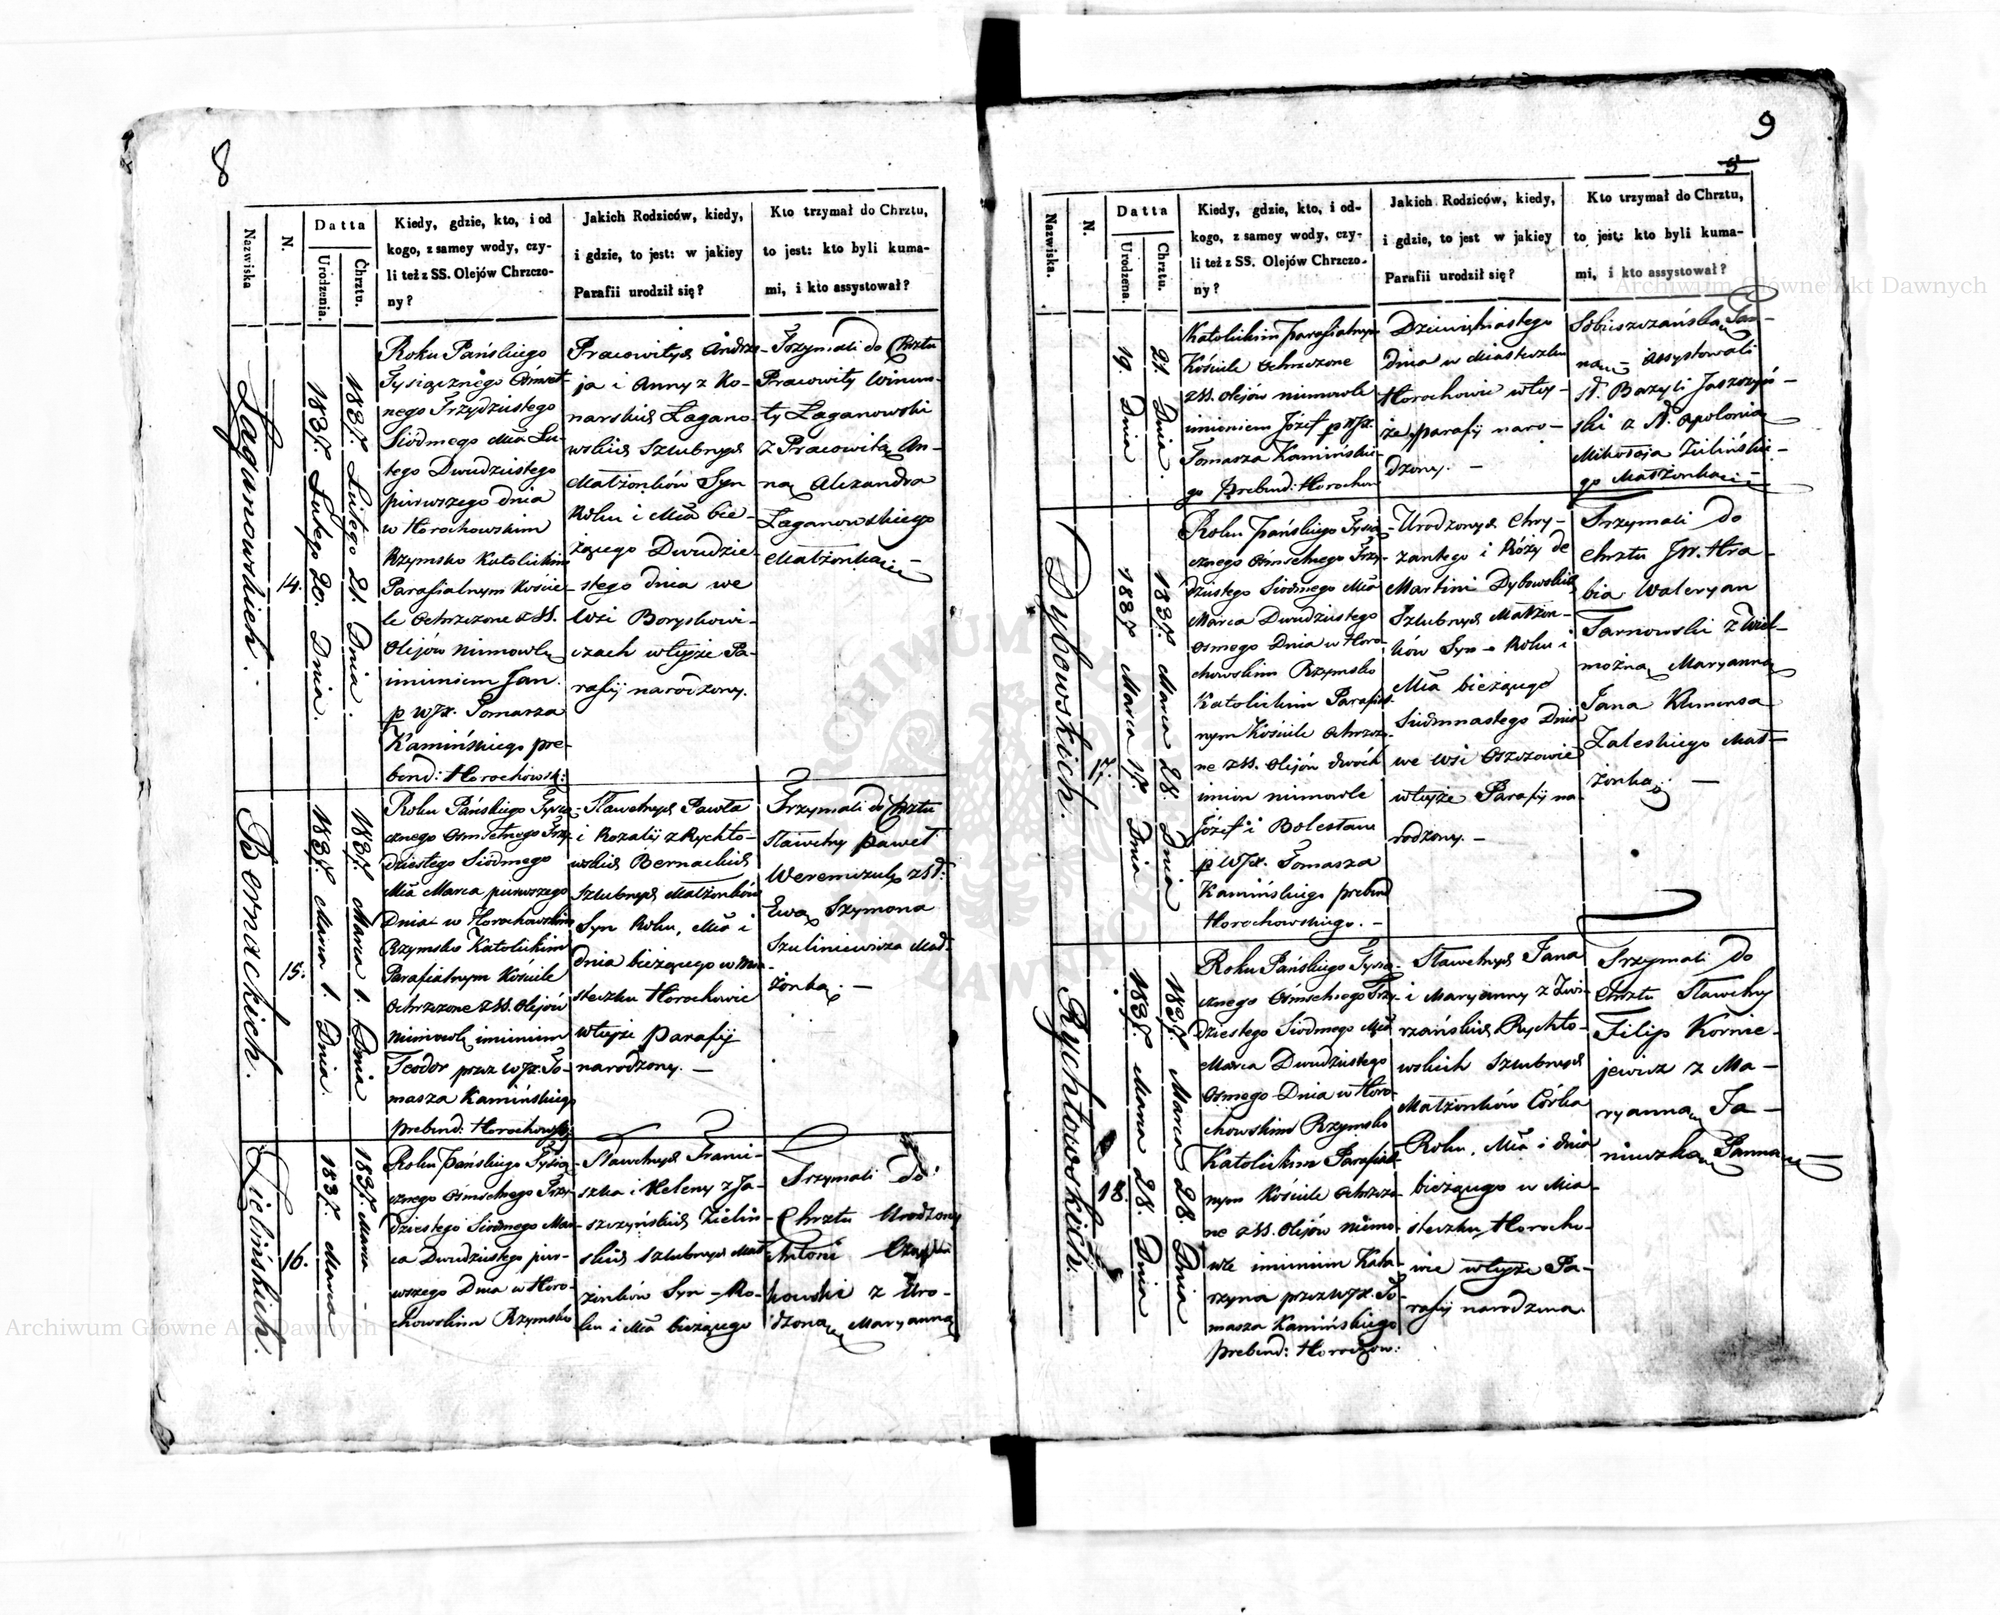 8
Nazwiska
N.
Datta
Urodzenia.
Chrztu.
Kiedy, gdzie, kto, i od
kogo, z samey wody, czy-
li też z SS. Olejów Chrzczo-
ny?
Jakich Rodziców, kiedy,
i gdzie, to jest: w jakiey
Parafii urodził się?
Kto trzymał do Chrztu,
to jest: kto byli kuma-
mi, i kto assystował?
Łaganowskich.
14.
1837. Lutego 20. Dnia.
1837. Lutego 21. Dnia.
Roku Pańskiego
Tysiącznego Ośmset-
nego Trzydziestego
Siódmego Mca Lu-
tego Dwudziestego
pierwszego dnia
w Horochowskim
Rzymsko Katolickim
Parafialnym Kości-
le Ochrzczone z SS.
Olejów niemowlę
imieniem Jan
p WJX. Tomasza
Kamińskiego pre-
bend: Horochowsk:
Pracowitych Andrze-
ja i Anny z Ko-
narskich Łagano-
wskich Szlubnych
Małżonków Syn
Roku i Mca bie-
żącego Dwudzie-
stego dnia we
Wsi Boryskowi-
czach wtejże Pa-
rafij narodzony.
Trzymali do Chrztu
Pracowity Winen-
ty Łaganowski
z Pracowitą An-
ną Alexandra
Łaganowskiego
Małżonką
Bernackich.
15.
1837. Marca 1. Dnia
1837. Marca 1. Dnia
Roku Pańskiego Tysią-
cznego Osmsetnego Trzy-
dziestego Siódmego
Mca Marca pierwszego
Dnia w Horochowskim
Rzymsko Katolickim
Parafialnym Kościele
Ochrzczone z SS. Olejów
niemowlę imieniem
Teodor przez WJX. To-
masza Kamińskiego
prebend: Horochowsk:
Sławetnych Pawła
i Rozalij z Rychto-
wskich Bernackich
Szlubnych Małżonków
Syn Roku, Mca i
dnia bieżącego w Mia-
steczku Horochowie
wtejże Parafij
narodzony. —
Trzymali do Chrztu
Sławetny Paweł
Weremczuk z Sł:
Ewą Szymona
Szuliniewicza Mał-
żonką. —
Zielińskich.
16.
1837. Marca
1837. Marca —
Roku Pańskiego Tysią-
cznego Ośmsetnego Trzy-
dziestego Siódmego Mar-
ca Dwudziestego pier-
wszego Dnia w Horo-
chowskim Rzymsko
Sławetnych Franci-
szka i Heleny z Ja-
szczyńskich Zieliń-
skich Szlubnych Mał-
żonków Syn – Ro-
ku i Mca bieżącego
Trzymali do
Chrztu Urodzony
Antoni
kowski z Uro-
dzoną Maryanną
9
5
Nazwiska.
N.
Datta
Urodzena.
Chrztu.
Kiedy, gdzie, kto, i od-
kogo, z samey wody, czy-
li też z SS. Olejów Chrzczo-
ny?
Jakich Rodziców, kiedy,
i gdzie, to jest w jakiey
Parafii urodził się?
Kto trzymał do Chrztu,
to jest: kto byli kuma-
mi, i kto assystował?
19. Dnia
21. Dnia.
Katolickim parafialnym
Kościele Ochrzczone
z SS. Olejów niemowle
imieniem Józef p WJX.
Tomasza Kamińskie-
go Prebend: Horochow
Dziewiętnastego
dnia w Miasteczku
Horochowie wtey-
że parafij naro-
dzony. —
Sobieszczańską Pan-
ną – Assystowali
S. Bazyli Jaszczyń-
ski z S. Apolonią
Mikołaja Zielińskie-
go Małżonką
Dybowskich.
17.
1837 Marca 17. Dnia
1837. Marca 28. Dnia
Roku Pańskiego Tysią-
cznego Ośmsetnego Trzy-
dziestego Siódmego Mca
Marca Dwudziestego
Osmego Dnia w Horo-
chowskim Rzymsko
Katolickim Parafial-
nym Kościele Ochrzczo-
ne z SS. Olejów dwóch
imion niemowle
Józef i Bolesław
p WJX. Tomasza
Kamińskiego prebend
Horochowskiego. —
Urodzonych Chry-
zantego i Róży de
Martini Dybowskich
Szlubnych Małżon-
ków Syn – Roku i
Mca bieżącego
Siedmnastego Dnia
we Wsi Oszczowie
wtejże Parafij na-
rodzony. —
Trzymali do
Chrztu JW. Hra-
bia Waleryan
Tarnowski z Wiel-
możną Maryanną
Jana Klemensa
Zaleskiego Mał-
żonką —
Rychtowskich.
18.
1837. Marca 28. Dnia
1837. Marca 28. Dnia
Roku Pańskiego Tysią-
cznego Ośmsetnego Trzy-
dziestego Siódmego Mca
Marca Dwudziestego
Osmego Dnia w Horo-
chowskim Rzymsko
Katolickim Parafial-
nym Kościele Ochrzczo-
ne z SS. Olejów niemo-
wle imieniem Kata-
rzyna przez WJX. To-
masza Kamińskiego
prebend: Horochow:
Sławetnych Jana
i Maryanny z Zwi-
rzańskich Rychto-
wskich Szlubnych
Małżonków Córka
Roku, Mca i dnia
bieżącego w Mia-
steczku Horocho-
wie wtejże Pa-
rafij narodzona.
Trzymali do
Chrztu Sławetny
Filip Kórnie-
jewicz z Ma-
ryanną Ja-
niuszką Panną
Archiwum Główne Akt Dawnych
Archiwum Główne Akt Dawnych